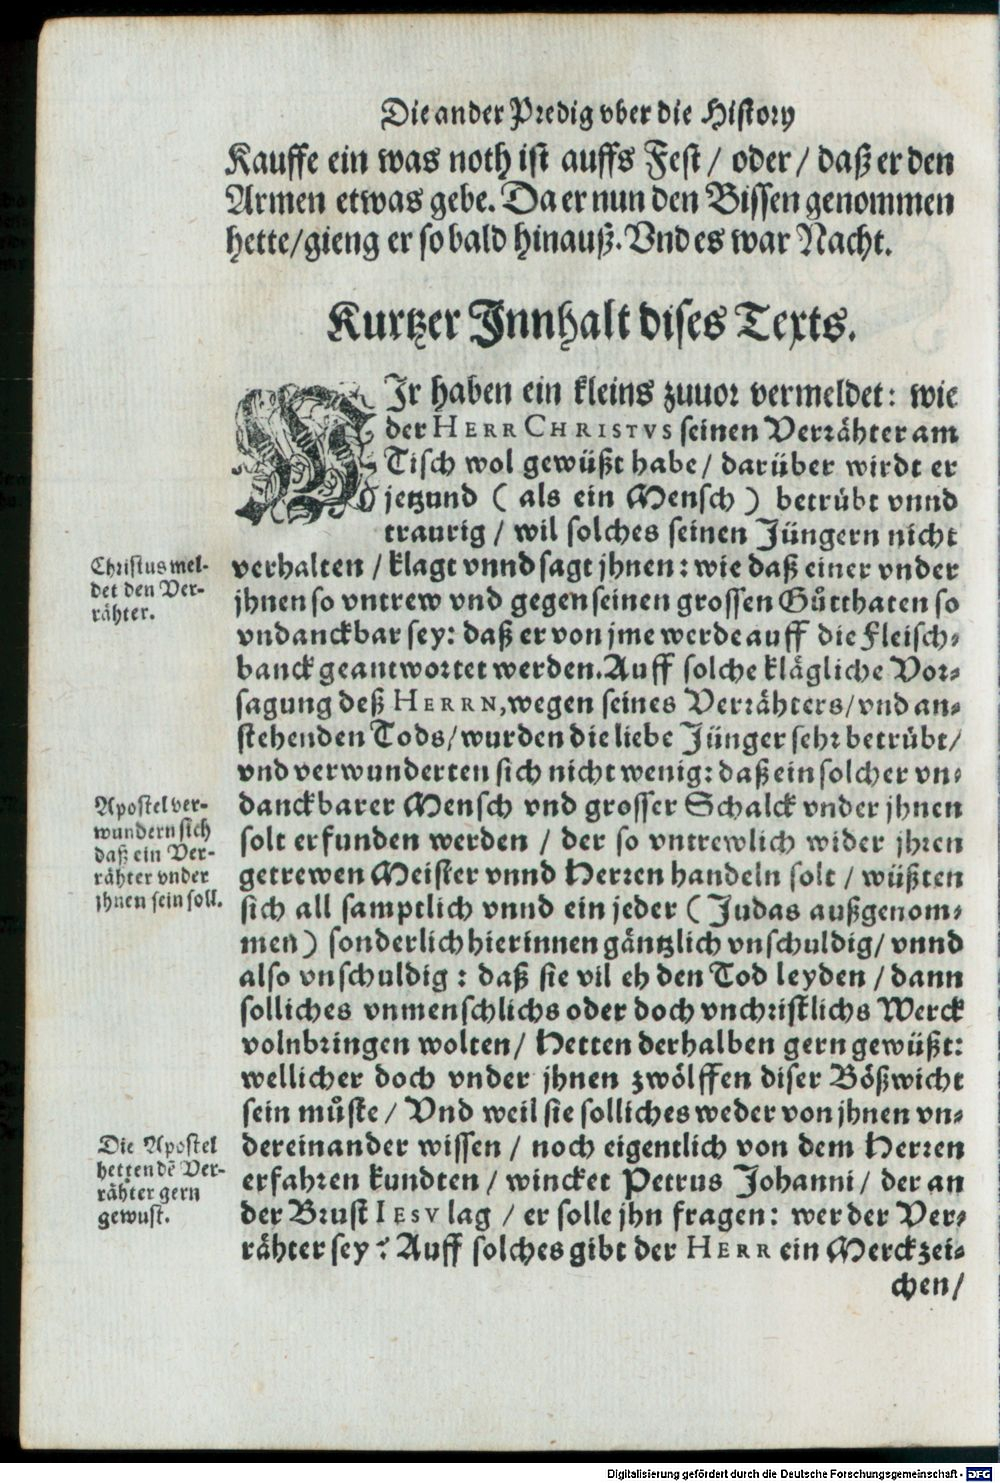 Die ander Predig vber die History
Kauffe ein was noth ist auffs Fest / oder / daß er den
Armen etwas gebe. Da er nun den Bissen genommen
hette/gieng er so bald hinauß. Vnd es war Nacht.
Kurtzer Innhalt dises Texts.
WIr haben ein kleins zuuor vermeldet: wie
der HERR CHRISTVS seinen Verrähter am
Tisch wol gewüßt habe / darüber wirdt er
jetzund ( als ein Mensch ) betrübt vnnd
traurig / wil solches seinen Jüngern nicht
Christus mel-
det den Ver-
rähter.
verhalten / klagt vnnd sagt jhnen: wie daß einer vnder
jhnen so vntrew vnd gegen seinen grossen Gůtthaten so
vndanckbar sey: daß er von jme werde auff die Fleisch-
banck geantwortet werden. Auff solche klägliche Vor-
sagung deß HERRN, wegen seines Verrähters/ vnd an-
stehenden Tods/ wurden die liebe Jünger sehr betrübt/
vnd verwunderten sich nicht wenig: daß ein solcher vn-
Apostel ver-
wundern sich
daß ein Ver-
rähter vnder
jhnen sein soll.
danckbarer Mensch vnd grosser Schalck vnder jhnen
solt erfunden werden / der so vntrewlich wider jhren
getrewen Meister vnnd Herren handeln solt / wüßten
sich all samptlich vnnd ein jeder ( Judas außgenom-
men ) sonderlich hierinnen gäntzlich vnschuldig/ vnnd
also vnschuldig : daß sie vil eh den Tod leyden / dann
solliches vnmenschlichs oder doch vnchristlichs Werck
volnbringen wolten/ Hetten derhalben gern gewüßt:
wellicher doch vnder jhnen zwölffen diser Bößwicht
sein můste / Vnd weil sie solliches weder von jhnen vn-
Die Apostel
hetten dē Ver-
rähter gern
gewust.
dereinander wissen / noch eigentlich von dem Herren
erfahren kundten / wincket Petrus Johanni / der an
der Brust IESV lag / er solle jhn fragen: wer der Ver-
rähter sey ? Auff solches gibt der HERR ein Merckzei-
chen/
Digitalisierung gefördert durch die Deutsche Forschungsgemeinschaft - DFG